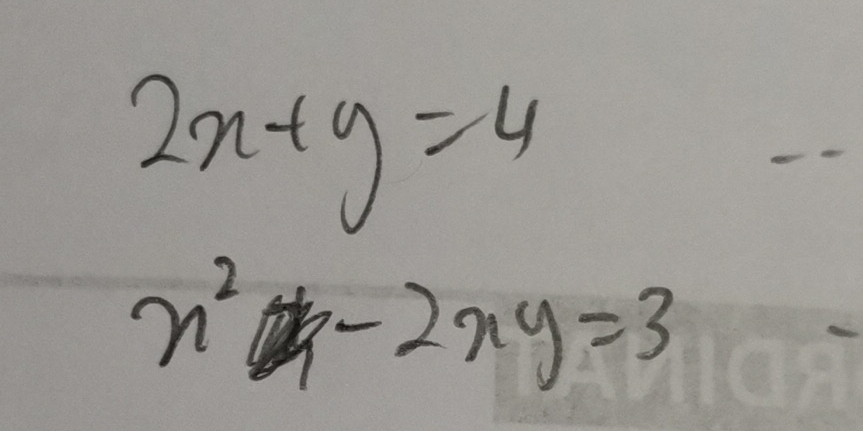 2x+y=4 --
x² -2xy=3 -